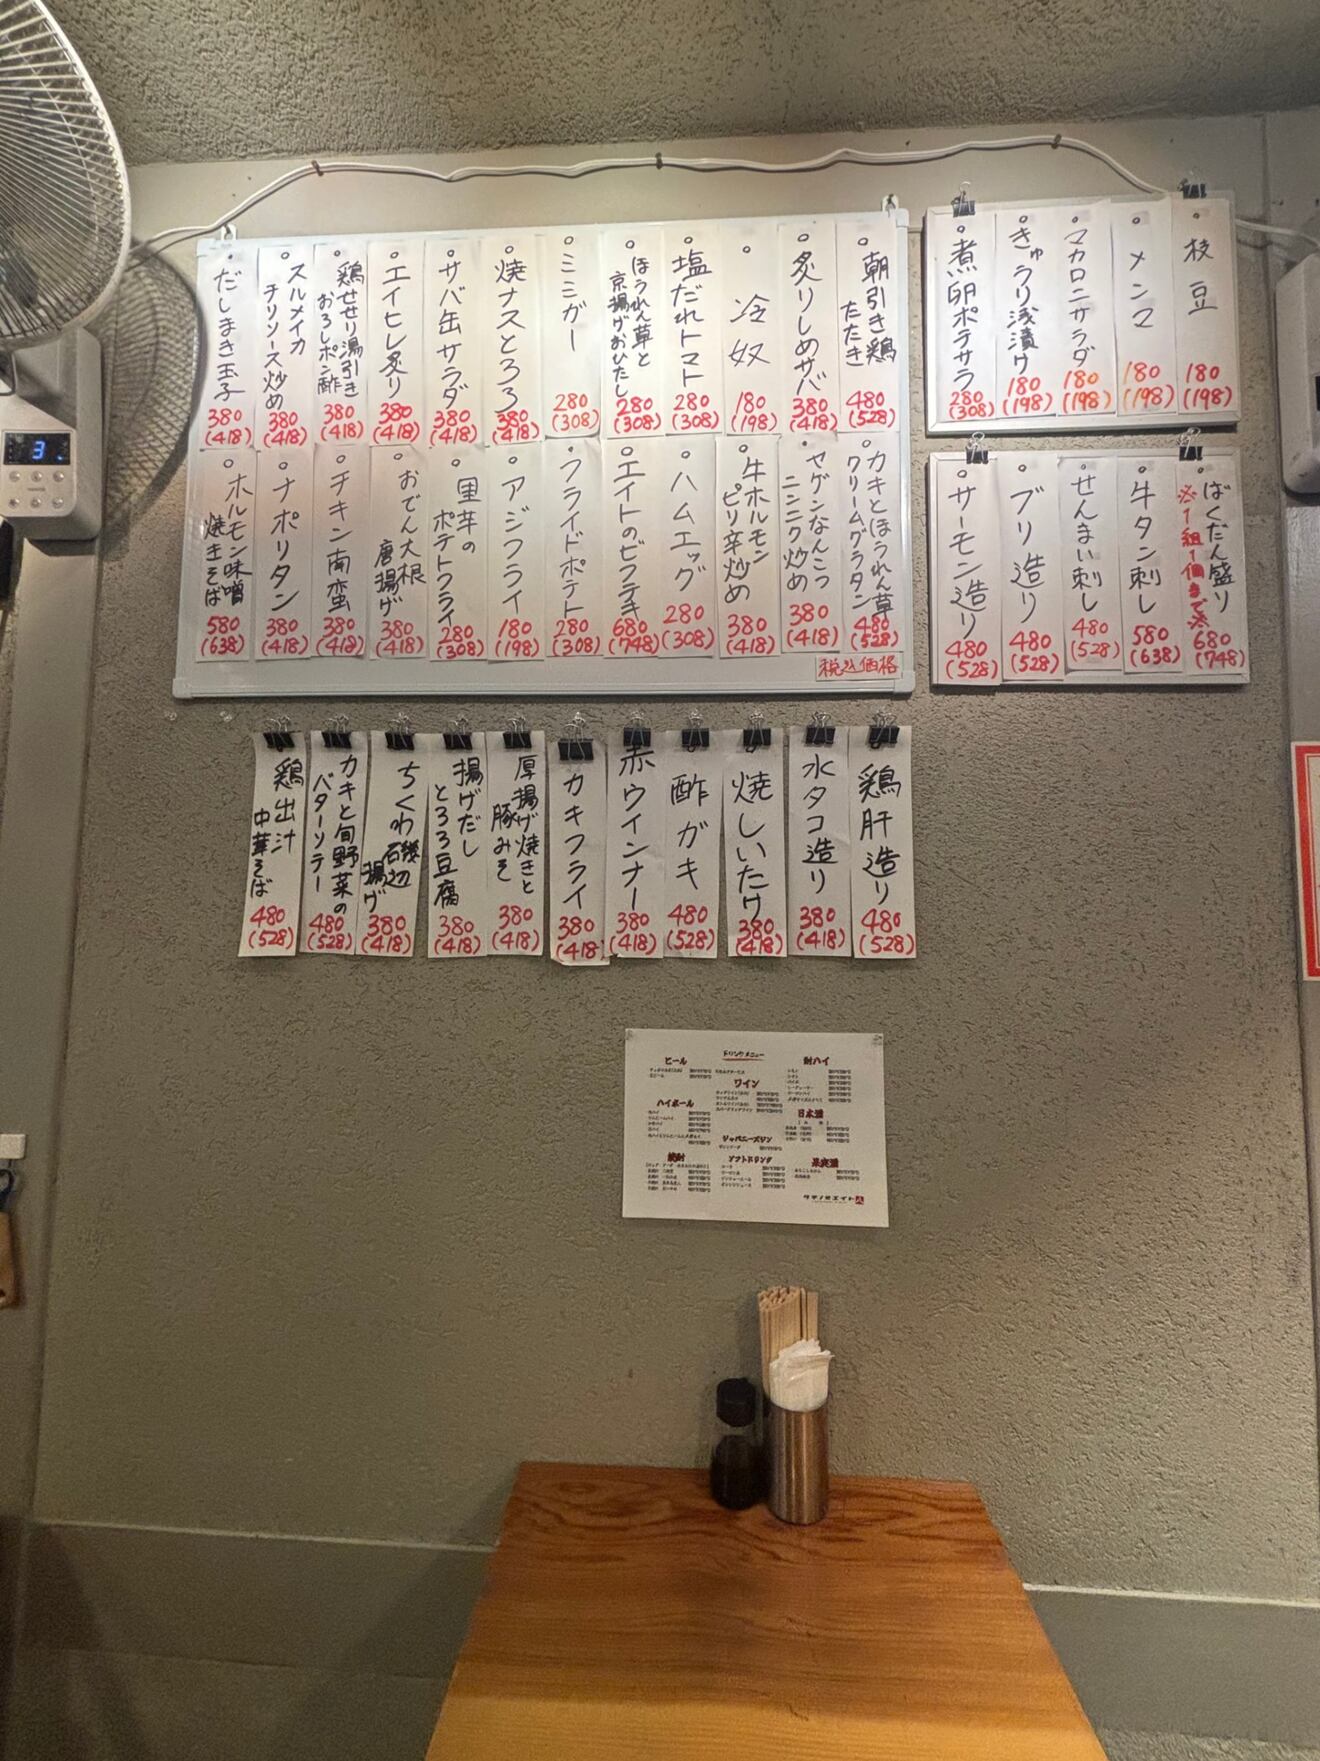 枝豆
180
(198)
メンマ
180
(198)
マカロニサラダ
180
(198)
きゅうり浅漬け
180
(198)
煮卵ポテサラ
280
(308)
ばくだん盛り
※1組1個まで※
680
(748)
牛タン刺し
580
(638)
せんまい刺し
480
(528)
ブリ造り
480
(528)
サーモン造り
480
(528)
朝引き鶏
たたき
480
(528)
炙りしめサバ
380
(418)
冷奴
180
(198)
塩だれトマト
280
(308)
ほうれん草と
京揚げおひたし
280
(308)
ミミガー
280
(308)
焼ナスとろろ
380
(418)
サバ缶サラダ
380
(418)
エイヒレ炙り
380
(418)
鶏せせり湯引き
おろしポン酢
380
(418)
スルメイカ
チリソース炒め
380
(418)
だしまき玉子
380
(418)
カキとほうれん草
クリームグラタン
480
(528)
ヤゲンなんこつ
ニンニク炒め
380
(418)
牛ホルモン
ピリ辛炒め
380
(418)
ハムエッグ
280
(308)
エイトのビフテキ
680
(748)
フライドポテト
280
(308)
アジフライ
180
(198)
里芋の
ポテトフライ
280
(308)
おでん大根
唐揚げ
380
(418)
チキン南蛮
380
(418)
ナポリタン
380
(418)
ホルモン味噌
焼きそば
580
(638)
税込価格
鶏肝造り
480
(528)
水タコ造り
380
(418)
焼しいたけ
380
(418)
酢ガキ
480
(528)
赤ウインナー
380
(418)
カキフライ
380
(418)
厚揚げ焼きと
豚みそ
380
(418)
揚げだし
とろろ豆腐
380
(418)
ちくわ磯辺
揚げ
380
(418)
カキと旬野菜の
バターソテー
480
(528)
鶏出汁
中華そば
480
(528)
ドリンクメニュー
ビール
ワイン
酎ハイ
ハイボール
日本酒
ジャパニーズジン
焼酎
ソフトドリンク
果実酒
タチノミエイト
3